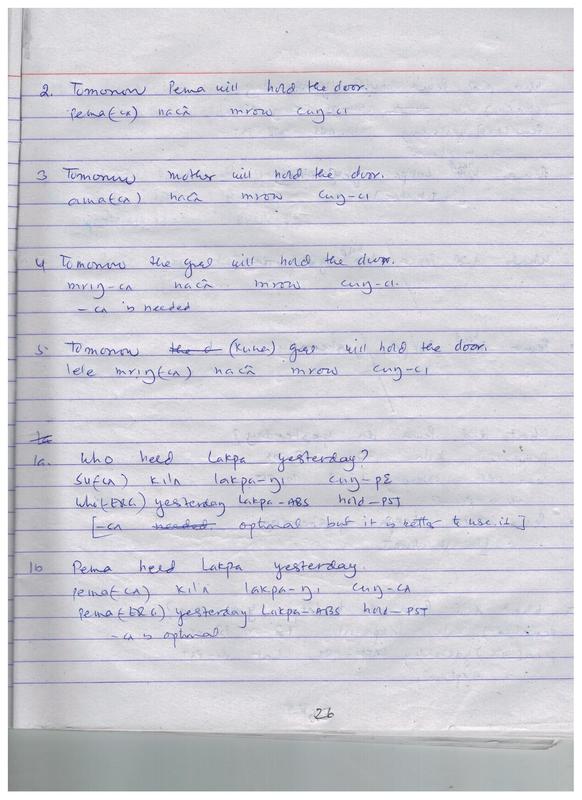 2. Tomorrow Pema will hold the door.
Pema(-cʌ) nacâ mrow cuŋ-cɪ
3 Tomorrow mother will hold the door.
ama(-cʌ) nacâ mrow cuŋ-cɪ
4 Tomorrow the girl will hold the door.
mrɪŋ-cʌ nacâ mrow cuŋ-cɪ.
-cʌ is needed
5. Tomorrow the (Kuwa) girl will hold the door.
lele mrɪŋ(-cʌ) nacâ mrow cuŋ-cɪ
1a. Who held Lakpa yesterday?
su(-cʌ) kilʌ lakpa-ŋɪ cuŋ-pɛ
Who(-ERG) yesterday Lakpa-ABS hold-PST
[-cʌ needed. optional but it is better to use it.]
1b Pema held Lakpa yesterday.
pema(-cʌ) kilʌ lakpa-ŋɪ cuŋ-cʌ
Pema(-ERG) yesterday Lakpa-ABS hold-PST
-cʌ is optional
26